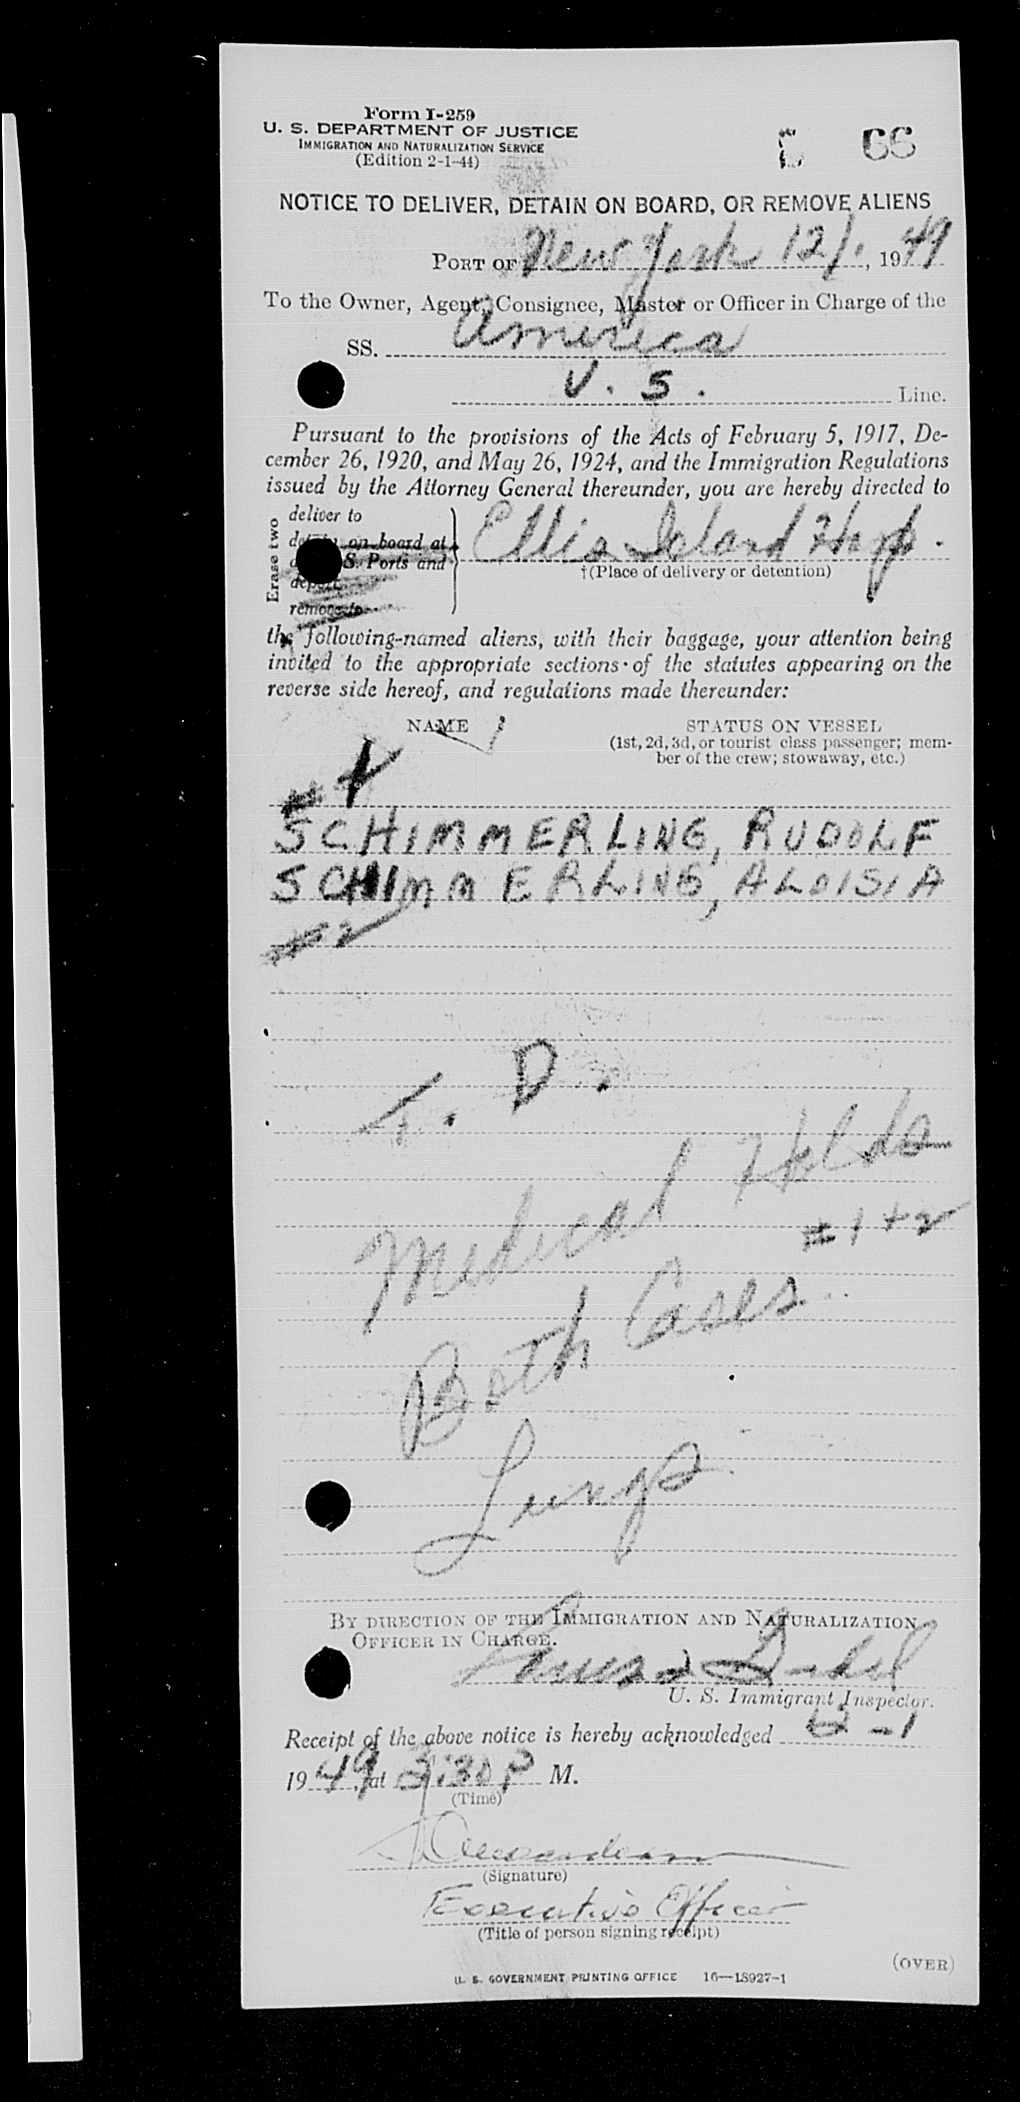 Form I-259
U. S. DEPARTMENT OF JUSTICE
IMMIGRATION AND NATURALIZATION SERVICE
(Edition 2-1-44)
66
NOTICE TO DELIVER, DETAIN ON BOARD, OR REMOVE ALIENS
PORT OF New York 12/1, 1949
To the Owner, Agent, Consignee, Master or Officer in Charge of the
SS. America
U. S. Line.
Pursuant to the provisions of the Acts of February 5, 1917, De-
cember 26, 1920, and May 26, 1924, and the Immigration Regulations
issued by the Attorney General thereunder, you are hereby directed to
Erase two
deliver to
on board at
S. Ports and
remove to
Ellis Island Hosp.
†(Place of delivery or detention)
the following-named aliens, with their baggage, your attention being
invited to the appropriate sections of the statutes appearing on the
reverse side hereof, and regulations made thereunder:
NAME
STATUS ON VESSEL
(1st, 2d, 3d, or tourist class passenger; mem-
ber of the crew; stowaway, etc.)
#1
SCHIMMERLING, RUDOLF
SCHIMMERLING, ALOISIA
#2
T. D.
Medical Holds
#1+2
Both Cases
Lungs
BY DIRECTION OF THE IMMIGRATION AND NATURALIZATION
OFFICER IN CHARGE.
U. S. Immigrant Inspector.
Receipt of the above notice is hereby acknowledged 12-1
1949, at 3:30 P M.
(Time)
(Signature)
Executive Officer
(Title of person signing receipt)
(OVER)
U. S. GOVERNMENT PRINTING OFFICE 16—18927-1